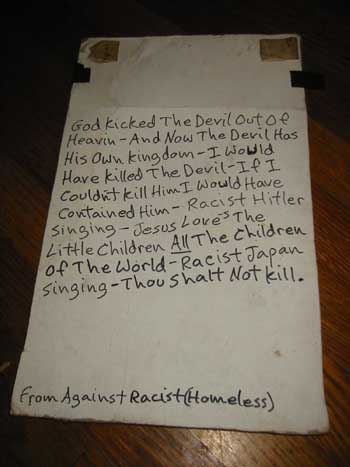 God Kicked The Devil Out Of
Heavin - And Now The Devil Has
His Own Kingdom - I Would
Have Killed The Devil - If I
Couldn't Kill Him I Would Have
Contained Him - Racist Hitler
singing - Jesus Loves The
Little Children All The Children
Of The World - Racist Japan
singing - Thou Shalt Not Kill.
From Against Racist (Homeless)